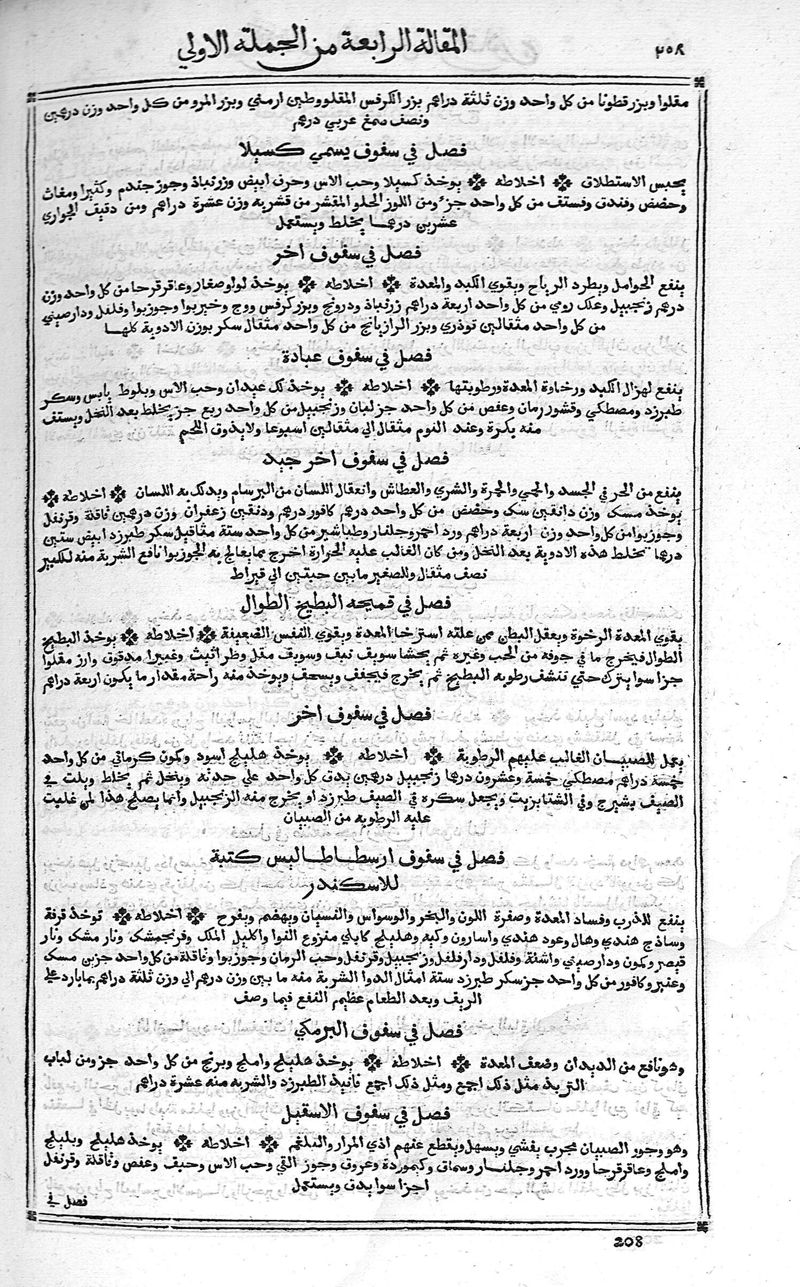 ٢٠٨
المقالة الرابعة من الجملة الاولي
مقلوا وبزر قطونا من كل واحد وزن ثلثة دراهم بزر الكرفس المقلو وطين ارمني وبزر المرو من كل واحد وزن درهمين
ونصف صمغ عربي درهم
فصل في سفوف يسمي كسيلا
يحبس الاستطلاق اخلاطه يوخذ كسيلا وحب الاس وحرف ابيض وزرنباذ وجوز جندم وكثيرا ومغاث
وحضض وفندق وفستف من كل واحد جزء ومن اللوز الحلو المقشر من قشريه وزن عشرة دراهم ومن دقيف الحواري
عشرين درهما يخلط ويستعمل
فصل في سفوف اخر
ينفع الحوامل ويطرد الرياح ويقوي الكبد والمعدة اخلاطه يوخذ لولو صغار وعاقرقرحا من كل واحد وزن
درهم زنجبيل وعلك رومي من كل واحد اربعة دراهم زرنباذ ودرونج وبزر كرفس ووج وخيربوا وجوزبوا وفلفل ودارصيني
من كل واحد مثقالين توذري وبزر الرازيانج من كل واحد مثقال سكر بوزن الادوية كلها
فصل في سفوف عبادة
ينفع لهزال الكبد ورخاوة المعدة ورطوبتها اخلاطه يوخذ لك عيدان وحب الاس وبلوط يابس وسكر
طبرزد ومصطكي وقشور رمان وعفص من كل واحد جز لبان وزنجبيل من كل واحد ربع جز يخلط بعد النخل ويستف
منه بكرة وعند النوم مثقال الي مثقالين اسبوعا ولا يذوق اللحم
فصل في سفوف اخر جيد
ينفع من الحر في الجسد والحمي والحمرة والشري والعطاش وانعقال اللسان من البرسام ويدلك به اللسان اخلاطه
يوخذ مسك وزن دانقين سك وحضض من كل واحد درهم كافور درهم ودنقين زعفران وزن درهمين قاقلة وقرنفل
وجوزبوا من كل واحد وزن اربعة دراهم ورد احمر وجلنار وطباشير من كل واحد ستة مثاقيل سكر طبرزد ابيض ستين
درهما تخلط هذه الادوية بعد النخل ومن كان الغالب عليه الحرارة اخرج مما يعالج به الجوزبوا نافع الشربة منه للكبير
نصف مثقال وللصغير مابين حبتين الي قيراط
فصل في قميحه البطيخ الطوال
يقوي المعدة الرخوة ويعقل البطن ممن علته استرخا المعدة ويقوي النفس الضعيفة اخلاطه يوخذ البطيخ
الطوال فيخرج ما في جوفه من الحب وغيره ثم يحشا سويق نبف وسويف مقل وطراثيث وغبيرا مدقوف وارز مقلوا
جزا سوا يترك حتي تنشف رطوبه البطيخ ثم يخرج فيجفف ويسحف ويوخذ منه راحة مقدار ما يكون اربعة دراهم
فصل في سفوف اخر
يعمل للصبيان الغالب عليهم الرطوبة اخلاطه يوخذ هليلج اسود وكمون كرماني من كل واحد
خمسة دراهم مصطكي خمسة وعشرون درهما زنجبيل درهمين يدق كل واحد علي حدته وينخل ثم يخلط ويلت في
الصيف بشيرج وفي الشتا بزيت ويجعل سكره في الصيف طبرزد او يخرج منه الزنجبيل وانما يصلح هذا لمن غلبت
عليه الرطوبه من الصبيان
فصل في سفوف ارسطاطاليس كتبة
للاسكندر
ينفع للذرب وفساد المعدة وصفرة اللون والبخر والوسواس والنسيان ويهضم ويفرح اخلاطه توخذ قرفة
وساذج هندي وهال وعود هندي واسارون وكبه وهليلج كابلي منزوع النوا واكليل الملك وفرنجمشك ونار مشك ونار
قيصر وكمون ودارصيني واشنة وفلفل ودارفلفل وزنجبيل وقرنفل وحب الرمان وجوزبوا وقاقلة من كل واحد جزين مسك
وعنبر وكافور من كل واحد جز سكر طبرزد ستة امثال الدوا الشربة منه ما بين وزن درهم الي وزن ثلثة دراهم بما بارد علي
الريق وبعد الطعام عظيم النفع فيما وصف
فصل في سفوف البرمكي
وهو نافع من الديدان وضعف المعدة اخلاطه يوخذ هليلج واملج وبرنج من كل واحد جز ومن لباب
التربد مثل ذلك اجمع ومثل ذلك اجمع فانيد الطبرزد والشربه منه عشرة دراهم
فصل في سفوف الاسقيل
وهو وجور الصبيان مجرب يفشي ويسهل ويقطع عنهم اذي المرار والبلغم اخلاطه يوخذ هليلج وبليلج
واملج وعاقرقرحا وورد احمر وجلنار وسماق وكبموردة وعروق وجوز التي وحب الاس وعفص وقاقلة وقرنفل
اجزا سوا يدق ويستعمل
فصل في
208